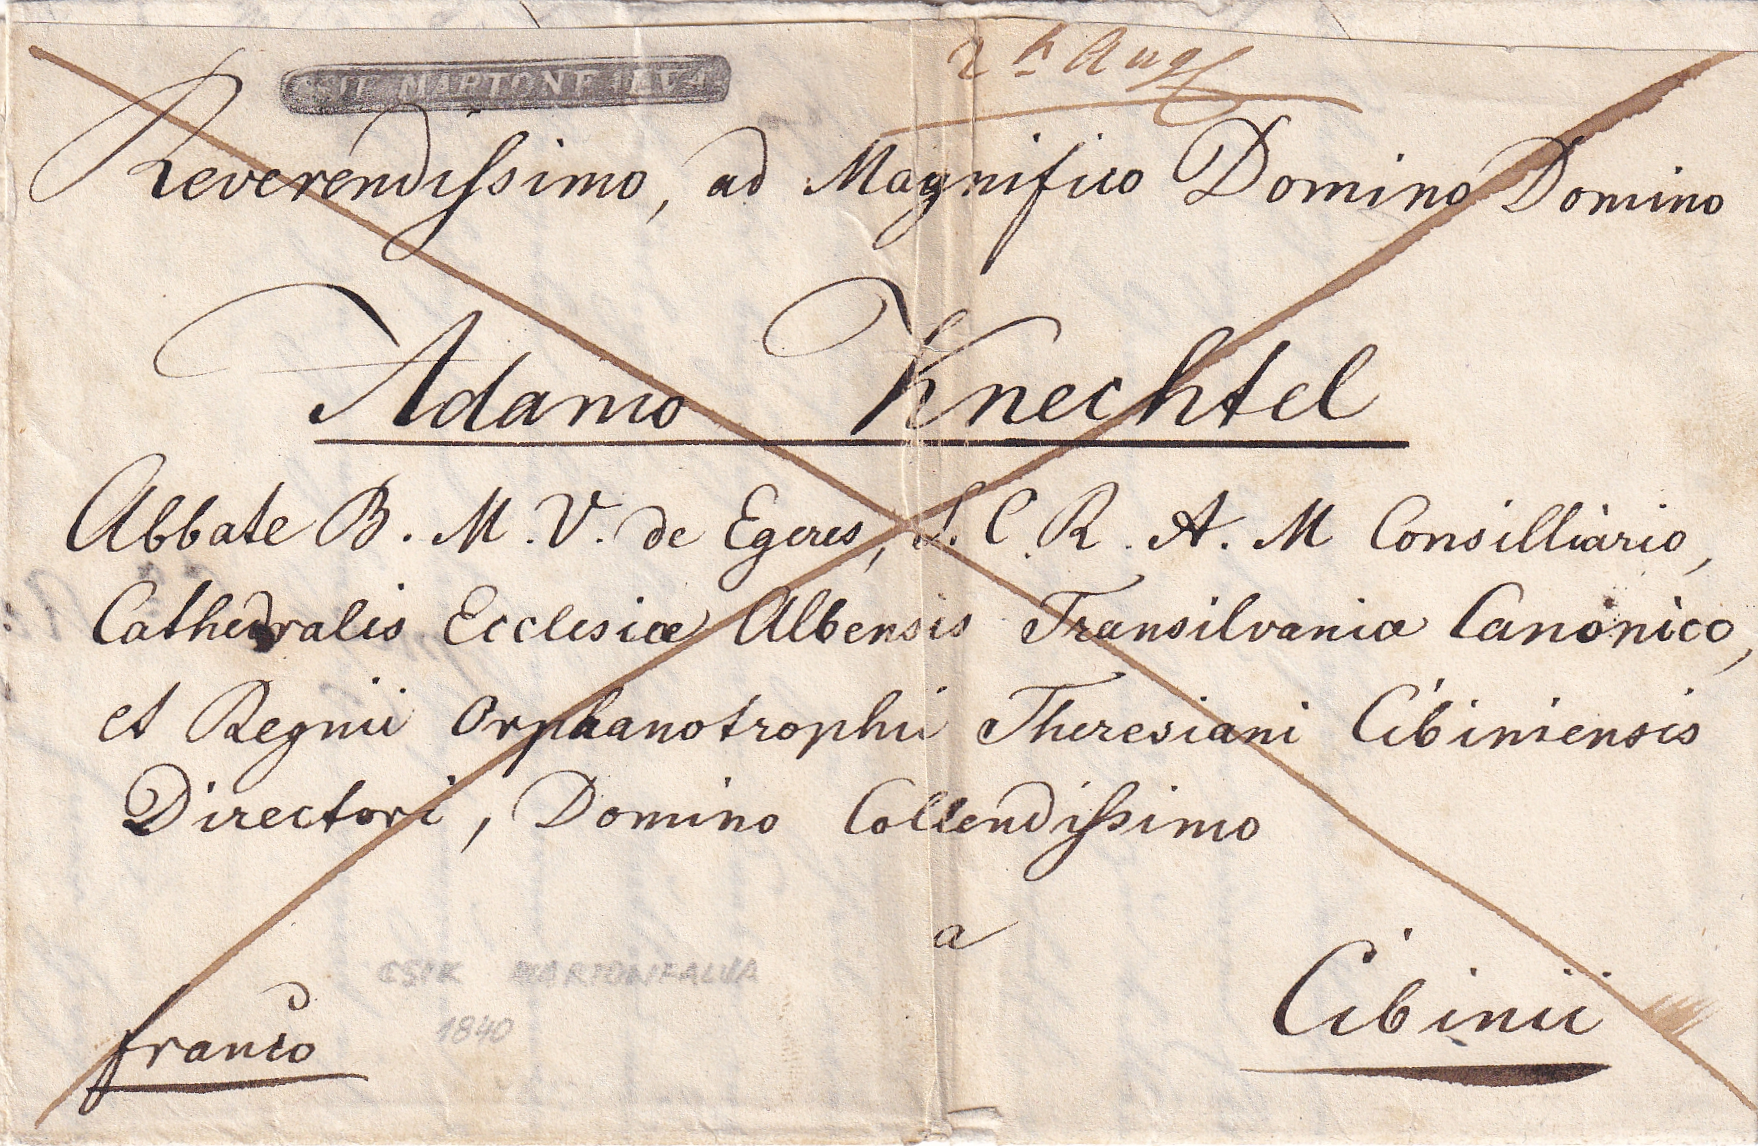 CSIK MARTONFALVA.
2 t Aug
Reverendissimo, ad Magnifico Domino Domino
Adamo Knechtel
Abbate B. M. V. de Egeres, S. C. R. A. M Consilliario,
Cathedralis Ecclesiæ Albensis Transilvaniæ Canonico,
et Regnii Orphanotrophii Theresiani Cibiniensis
Directori, Domino Collendissimo
a
Cibinii
franco
CSIK MARTONFALVA
1840